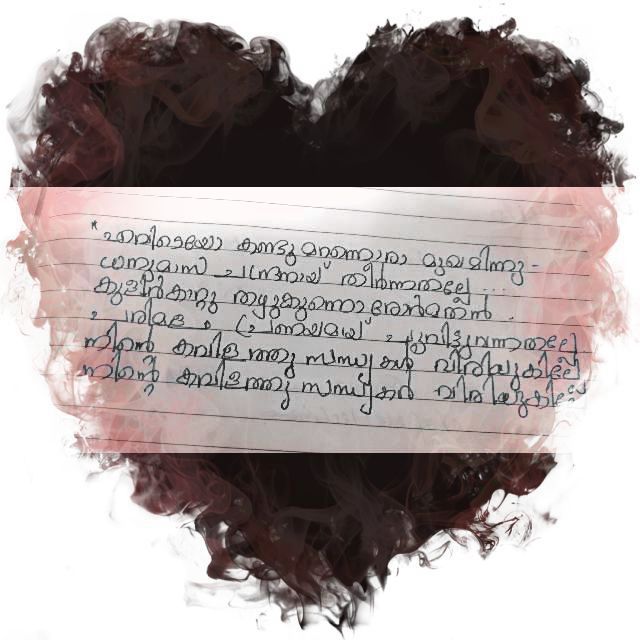 * എവിടെയോ കണ്ടു മറന്നൊരാ മുഖമിന്നു -
ധനുമാസ ചന്ദ്രനായ് തീർന്നതല്ലേ ...
കുളിർകാറ്റു തഴുകുന്നൊരോർമതൻ .
പരിമളം പ്രണയമായ് പൂവിട്ടുവന്നതല്ലേ
നിന്റെ കവിളത്തു സന്ധ്യകൾ വിരിയുകില്ലേ
നിന്റെ കവിളത്തു സന്ധ്യകൾ വിരിയുകില്ലേ